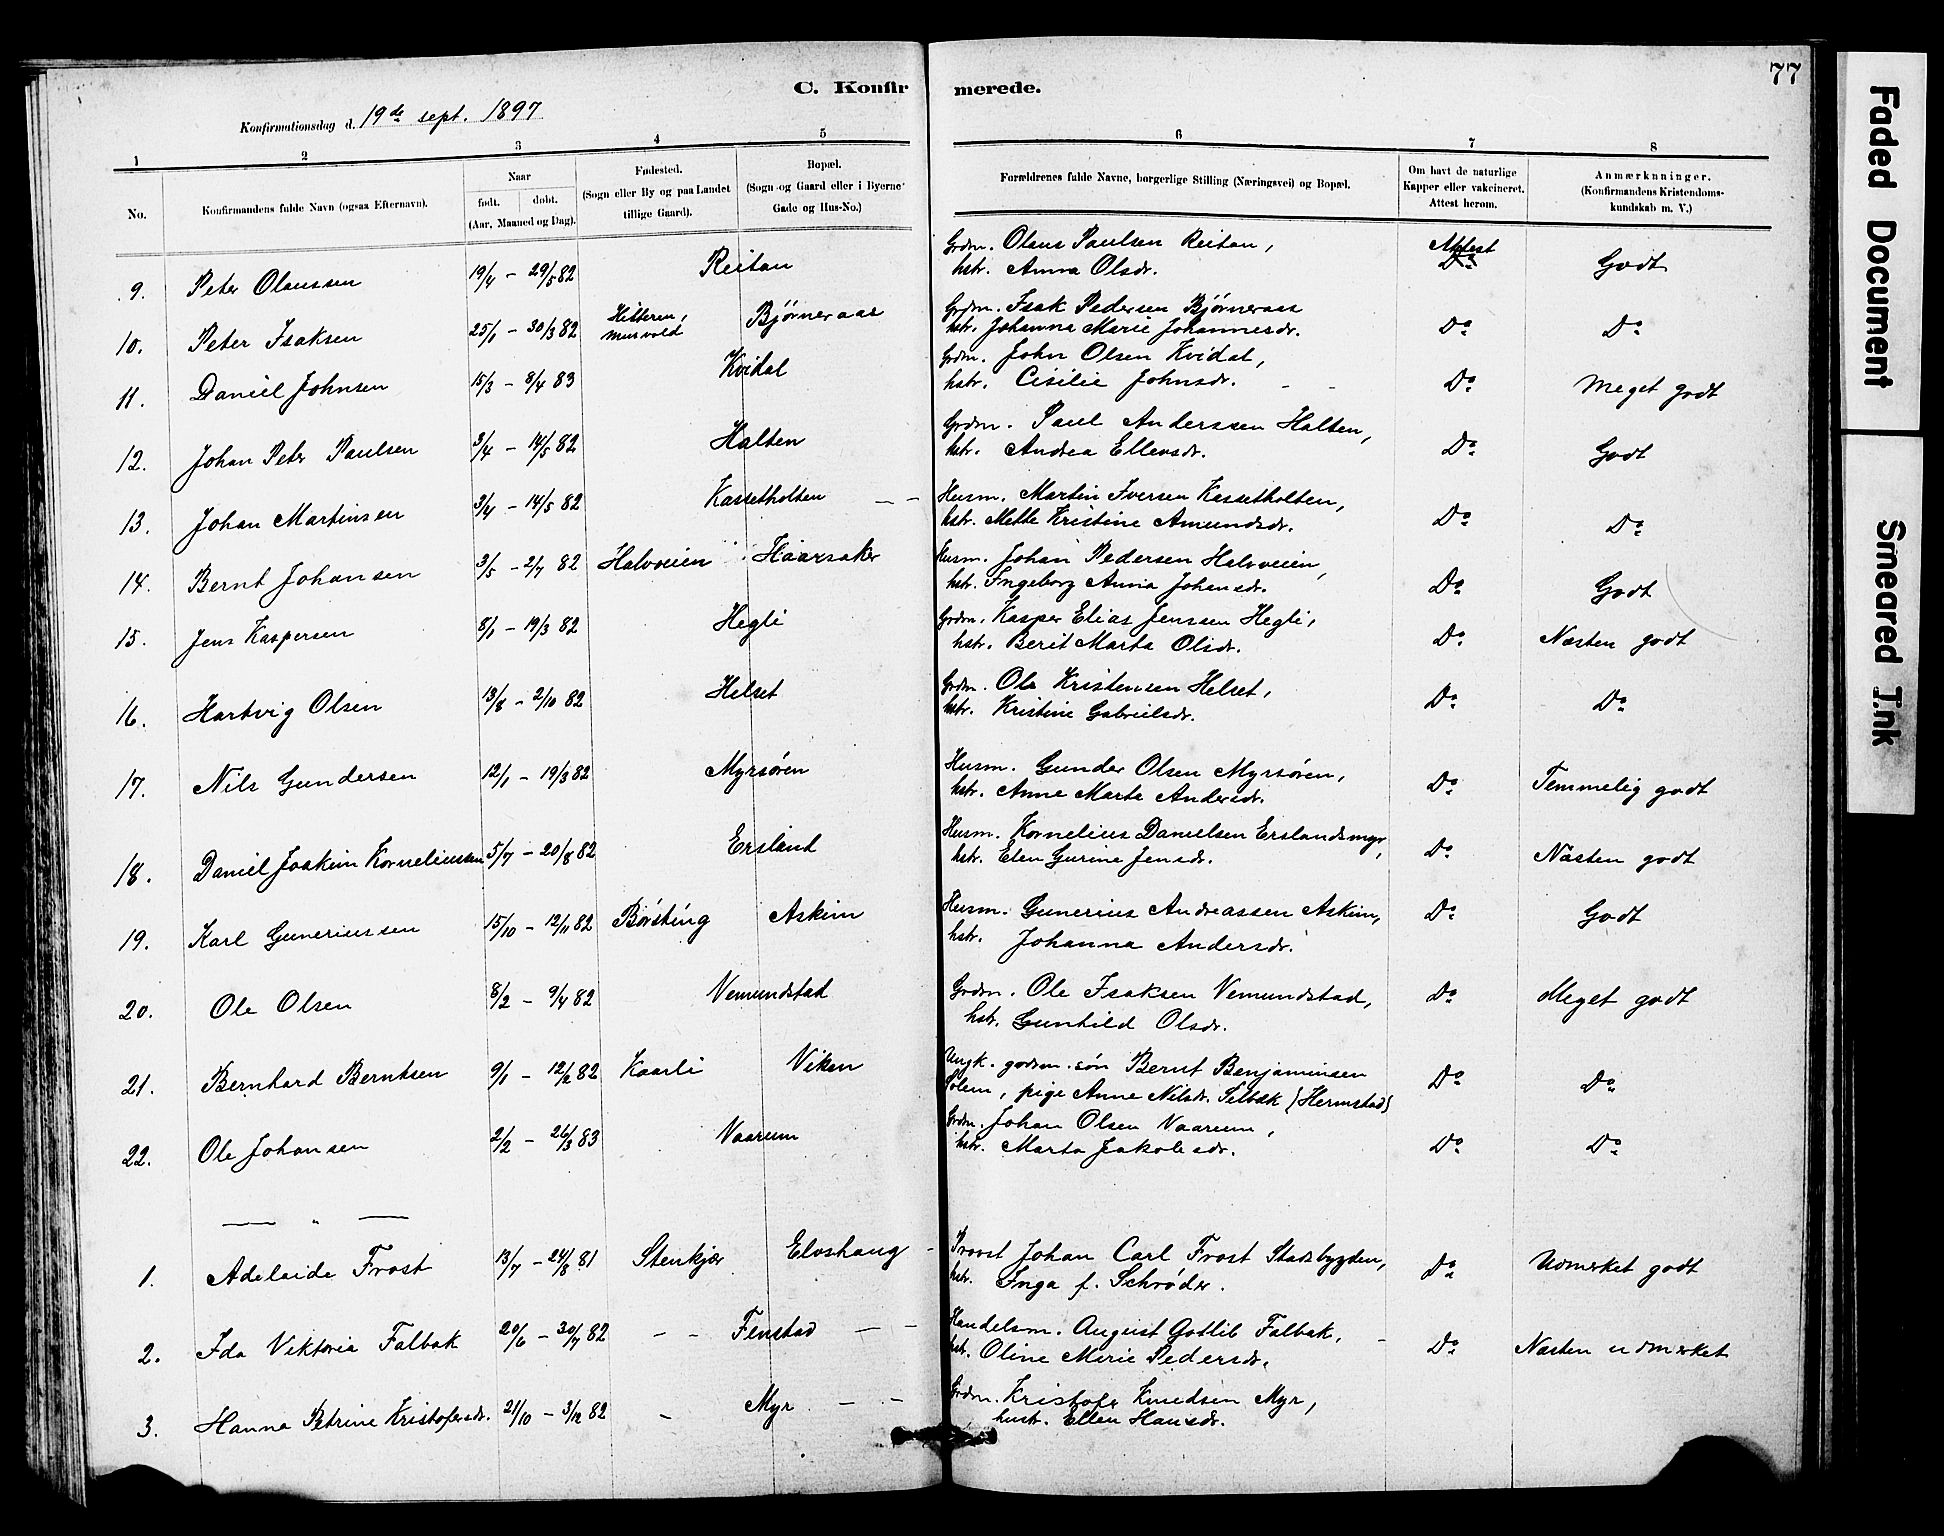 77
C. Konfirmerede.
Konfirmationsdag d. 19de sept. 1897
1 2 3 4 5 6 7 8
No.
Konfirmandens fulde Navn (ogsaa Efternavn).
Naar
født. døbt.
(Aar, Maaned og Dag).
Fødested.
(Sogn eller By og paa Landet
tillige Gaard).
Bopæl.
(Sogn og Gaard eller i Byerne
Gade og Hus-No.)
Forældrenes fulde Navne, borgerlige Stilling (Næringsvei) og Bopæl.
Om havt de naturlige
Kopper eller vakcineret.
Attest herom.
Anmærkninger.
(Konfirmandens Kristendoms-
kundskab m. V.)
9. Peter Olaussen 19/4 – 29/5 82 Reitan Grdm. Olaus Paulsen Reitan, Attest Godt
hstr. Anna Olsdr.
10. Peter Isaksen 25/1 – 30/3 82 Hitteren, Bjørneraas Grdm. Isak Pedersen Bjørneraas Do Do
hstr. Johanna Marie Johannesdr.
11. Daniel Johnsen 15/3 – 8/4 83 Kvidal Grdm. John Olsen Kvidal, Do Meget godt
hstr. Cisilie Johnsdr.
12. Johan Peter Paulsen 3/4 – 14/5 82 Halten Grdm. Paul Anderssen Halten, Do Godt
hstr. Andrea Ellevsdr.
13. Johan Martinsen 3/4 – 14/5 82 Kassetholten Husm. Martin Iversen Kassetholten, Do Do
hstr. Mette Kristine Amundsdr.
14. Bernt Johansen 3/5 – 2/7 82 Halvveien Haarsaker Husm. Johan Pedersen Halvveien, Do Godt
hstr. Ingeborg Anna Johansdr.
15. Jens Kaspersen 8/1 – 19/3 82 Hegli Grdm. Kasper Elias Jenssen Hegli, Do Næsten godt
hstr. Berit Marta Olsdr.
16. Hartvig Olsen 13/8 – 2/10 82 Helset Grdm. Ole Kristensen Helset, Do Do
hstr. Kristine Gabrielsdr.
17. Nils Gundersen 12/1 – 19/3 82 Myrsøren Husm. Gunder Olsen Myrsøren, Do Temmelig godt
hstr. Anne Marta Andersdr.
18. Daniel Joakim Korneliussen 5/7 – 20/8 82 Ersland Husm. Kornelius Danielsen Erslandsmyr, Do Næsten godt
hstr. Elen Gurine Jensdr.
19. Karl Guneriussen 15/10 – 12/11 82 Børsting Askim Husm. Gunerius Andreassen Askim, Do Godt
hstr. Johanna Andersdr.
20. Ole Olsen 8/2 – 9/4 82 Vemundstad Grdm. Ole Isaksen Vemundstad, Do Meget godt
hstr. Gunhild Olsdr.
21. Bernhard Berntsen 9/1 – 12/2 82 Kaarli Viken Ungk. gdrm. søn Bernt Benjaminsen Do Do
Solem, pige Anne Nilsdr. Selbæk (Hermstad)
22. Ole Johansen 2/2 – 26/3 83 Vaarum Grdm. Johan Olsen Vaarum, Do Do
hstr. Marta Jakobsdr.
— " —
1. Adelaide Frost 13/7 – 24/8 81 Stenkjær Elvshaug Provst Johan Carl Frost Stadsbygden, Do Udmerket godt
hstr. Inga f. Schrøder.
2. Ida Viktoria Falbak 20/6 – 30/7 82 – – Fenstad – – Handelsm. August Gotlib Falbak, Do Næsten udmerket
hstr. Oline Merie Pedersdr.
3. Hanna Petrine Kristofersdr. 21/10 – 3/12 82 – Myr – – Grdm. Kristofer Knudsen Myr,
hustr. Ellen Hansdr.
Faded Document
Smeared Ink